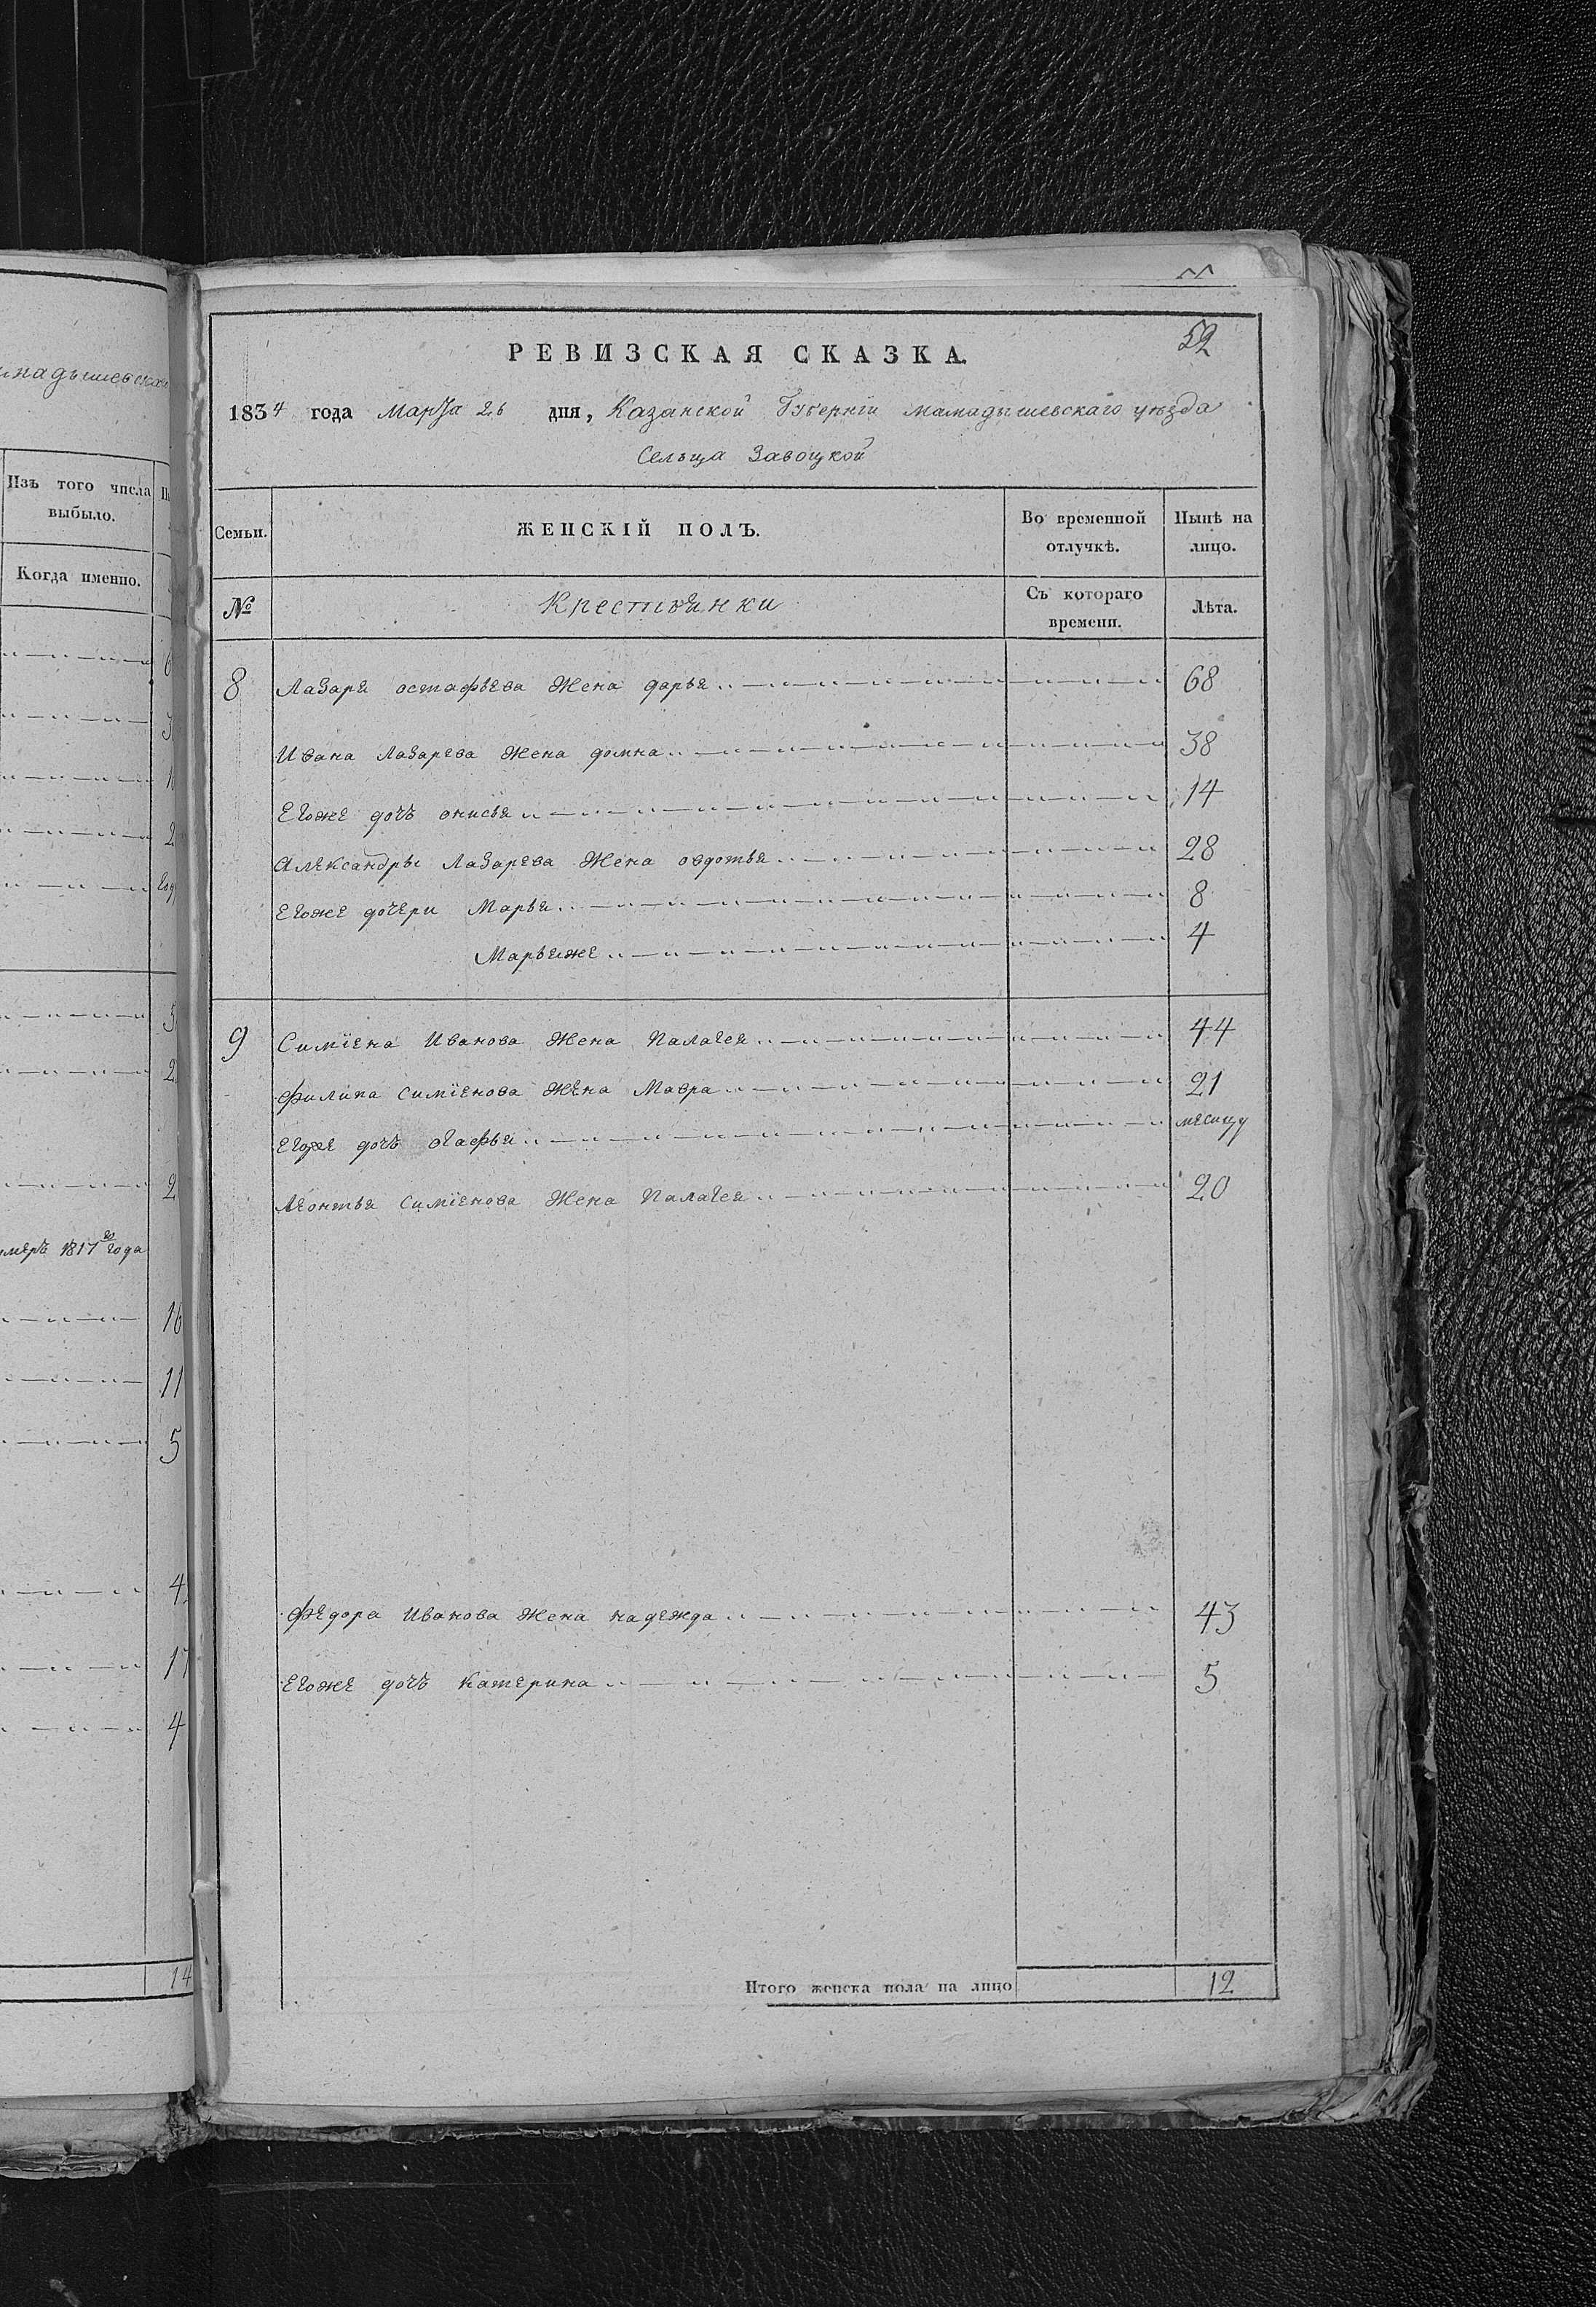 надышевскаго
Изъ того числа
выбыло.
Когда именно.
умеръ 1817го года
16
11
5
4
17
4
14
52
РЕВИЗСКАЯ СКАЗКА.
1834 года Марта 26 дня, Казанской Губерніи мамадышевскаго уѣзда
Сельца Завоцкой
Семьи. ЖЕНСКІЙ ПОЛЪ. Во временной отлучкѣ. Нынѣ на лицо.
№ Крестьянки Съ котораго времени. Лѣта.
8 Лазаря остафьева Жена дарья 68
Ивана Лазарева Жена домна 38
Егоже дочь анисья 14
Александры Лазарева Жена овдотья 28
Егоже дочери Марья 8
Марьяже 4
9 Симіена Иванова Жена Палагея 44
Филипа Симіенова Жена Мавра 21
Егоже дочь огафья месицу
Леонтья Симіенова Жена Палагея 20
Федора Иванова Жена надежда 43
Егоже дочь Катерина 5
Итого женска пола на лицо 12